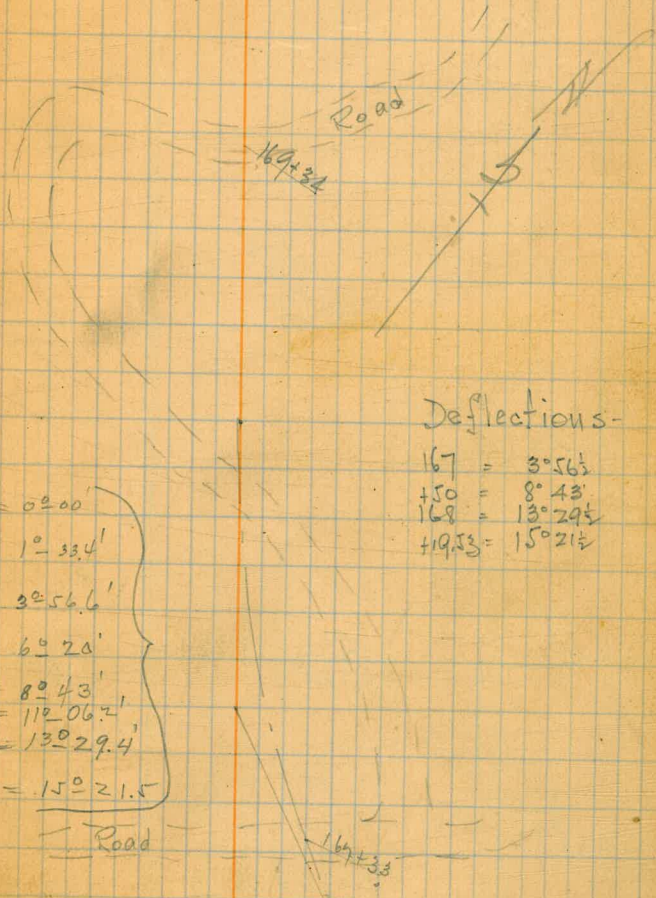 Road
169+34
N
Deflections-
167 = 3°56½
+50 = 8° 43'
168 = 13°29½
+19.53 = 15°21½
= 0°00'
1°-33.4'
3°56.6'
6° 20'
8° 43'
= 11°-06.2'
= 13°-29.4'
= 15° 21.5
Road